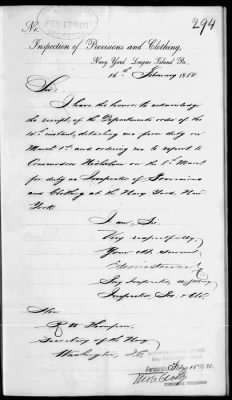 294
No.
FEB 17 1880
Inspection of Provisions and Clothing,
Navy Yard, League Island Pa.,
16th February 1880.
Sir:
I have the honor to acknowledge
the receipt of the Department's order of the
14th instant, detaching me from duty on
March 1st and ordering me to report to
Commodore Nicholson on the 1st March
for duty as Inspector of Provisions
and Clothing at the Navy Yard, New
York.
I am, Sir,
Very respectfully,
Your obt. servant
Pay Inspector U.S. Navy
Inspector, Pro. & Clo.
Hon.
R. W. Thompson,
Secretary of the Navy
Washington, D.C.
Forwarded Feby 16th/80.